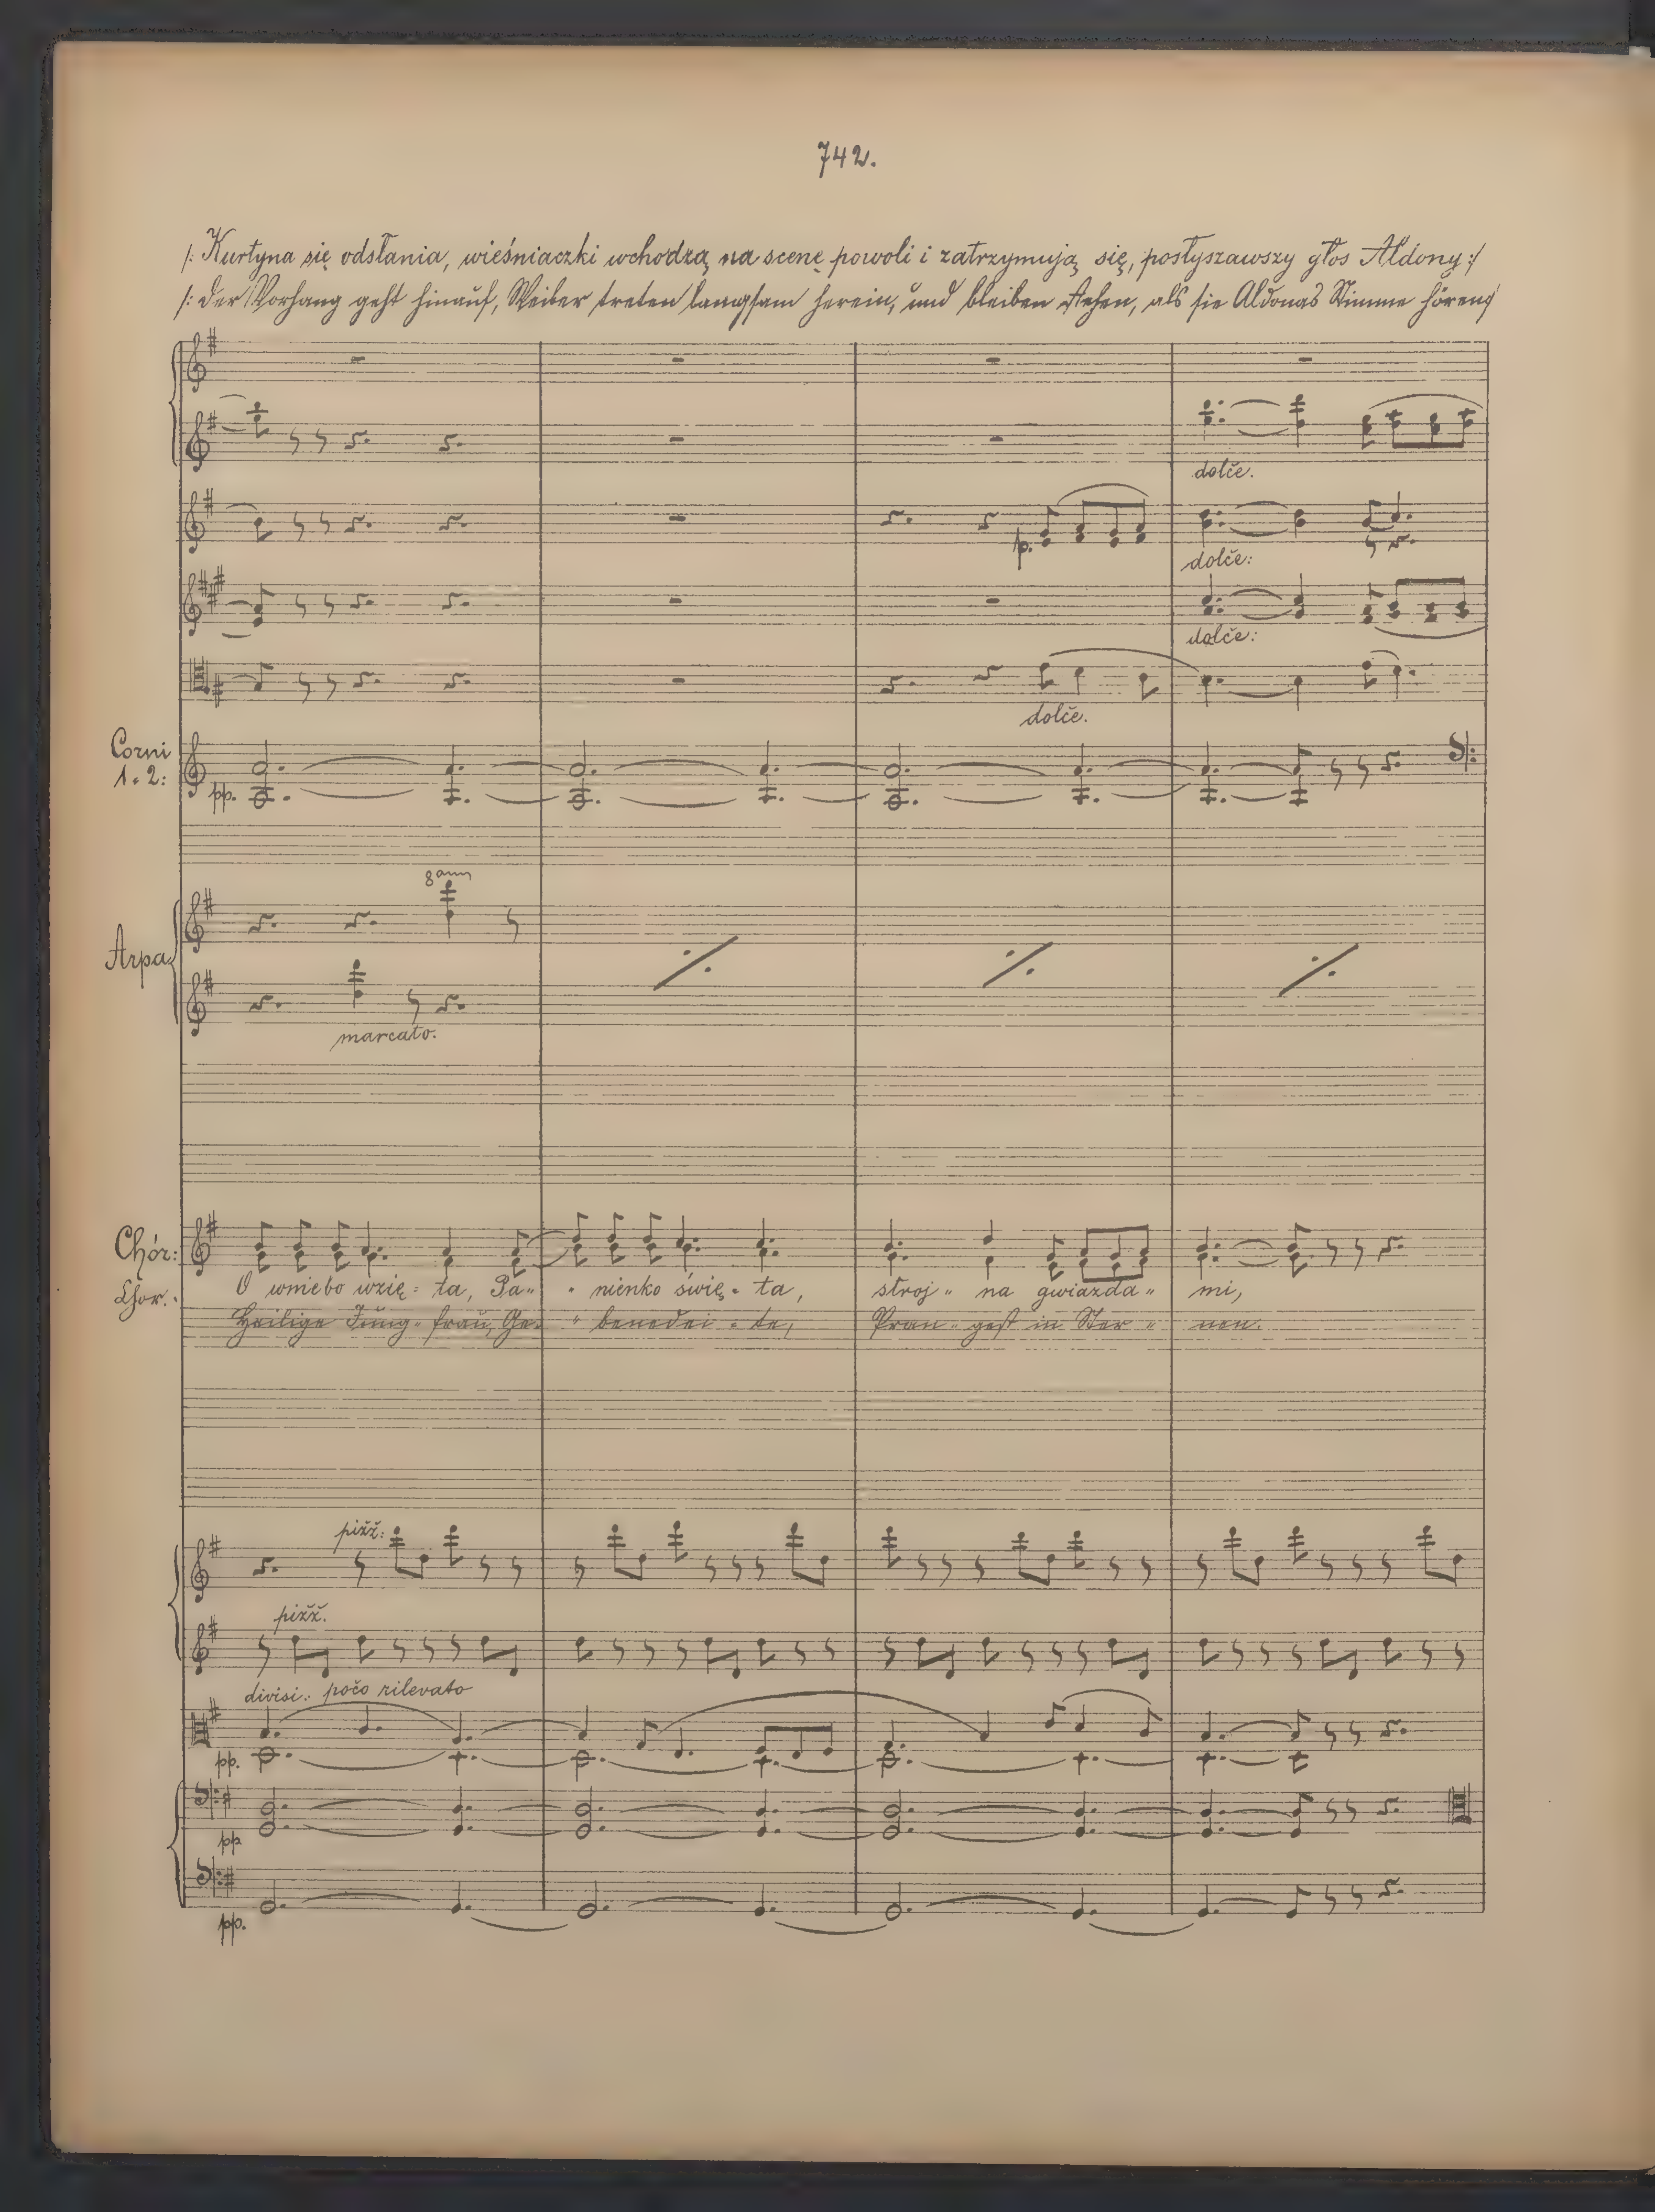 742.
/: Kurtyna się odsłania, wieśniaczki wchodzą na scenę powoli i zatrzymują się, posłyszawszy głos Aldony :/
/: Der Vorhang geht hinauf, Weiber treten langsam herein, und bleiben stehen, als sie Aldonas Stimme hören :/
dolče.
p.
dolče:
dolče:
dolče.
Corni
1. 2:
pp.
8a
Arpa
marcato.
Chór:
Chor.
O wniebo wzię = ta, Pa " " nienko swię = ta, stroj " na gwiazda " mi,
Heilige Jung = frau, Ge " " benedei = te, Pran = gest in Ster " nen.
pizz̆:
pizz̆.
divisi: počo rilevato
pp.
pp
pp.